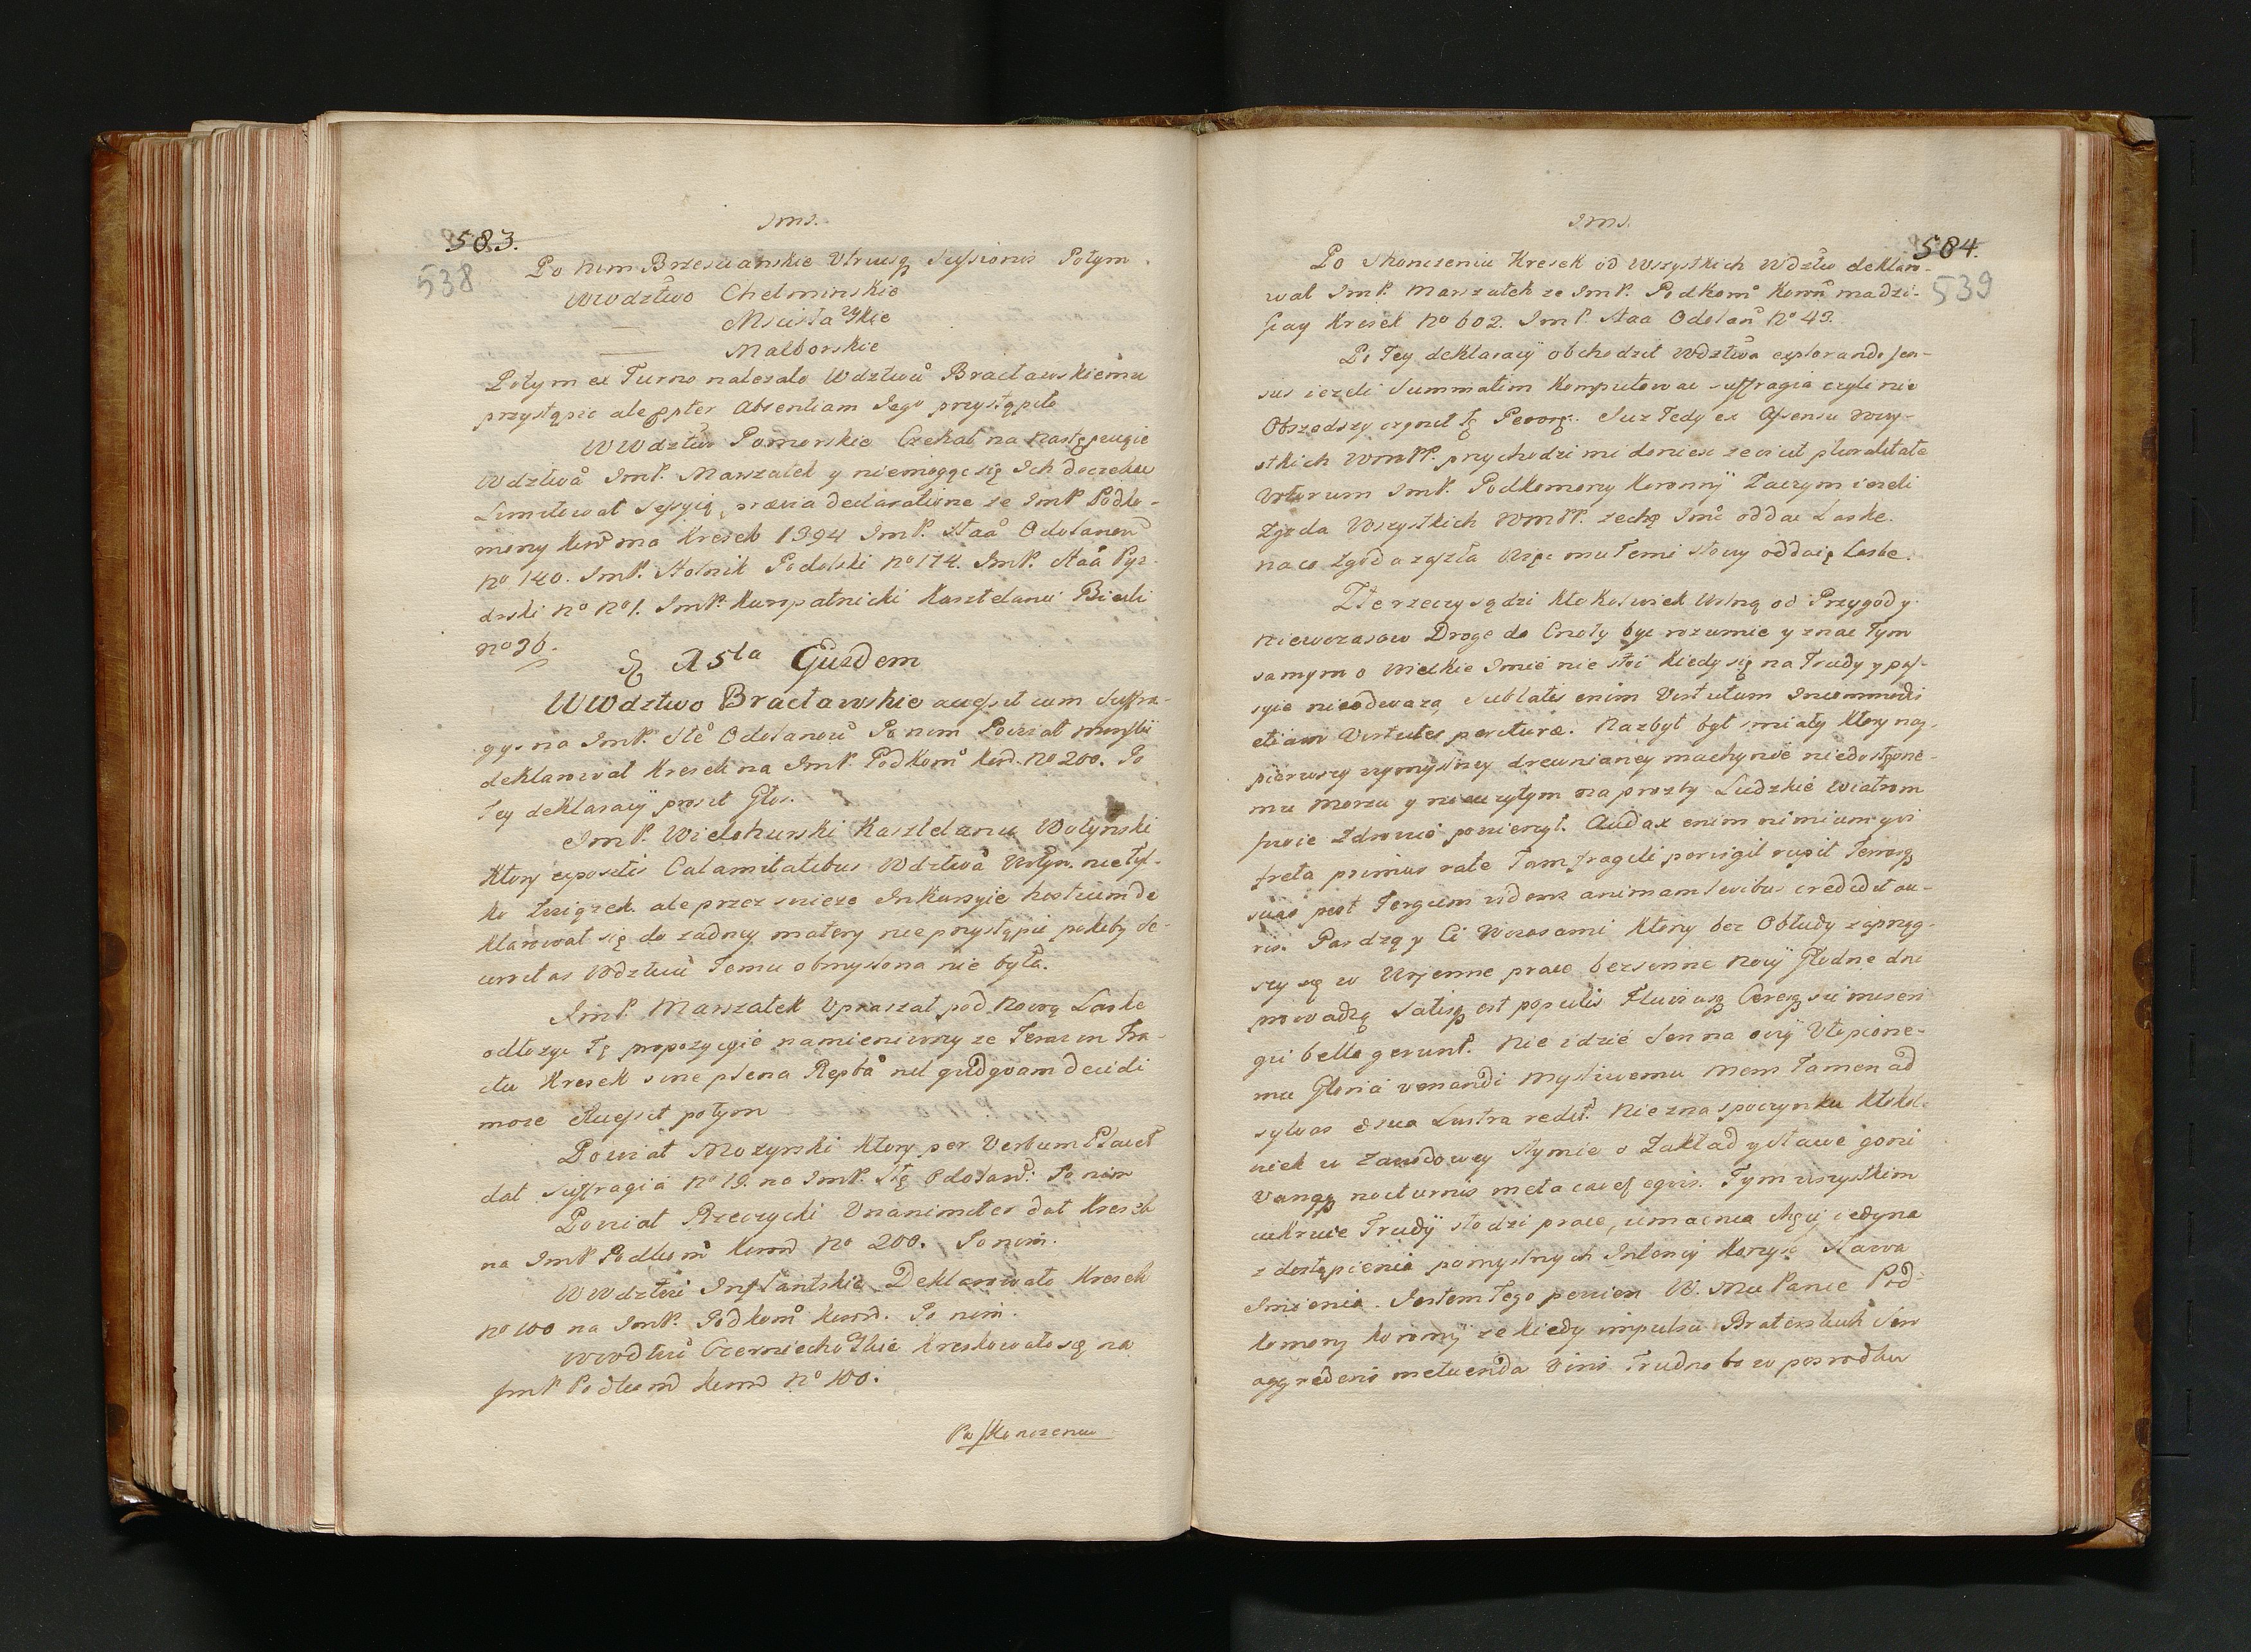 583.
538
Po nim Brzescianskie Utriusq Sessionis Potym
WWdztwo Chelminskie
Mscisławskie
Malborskie
Potym ex Turno nalezało Wdztwu Bracławskiemu
przystąpic ale ppter Absentiam Jego przystąpiło
WWdztwo Pomorskie Czekał na następuiące
Wdztwa ImP. Marszałek y niemogąc się Ich doczekac
Limitował Sessyią, praevia declaratione ze ImP Podko-
morzy Kor ma Kresek 1394 ImP. Staa Odolanow
no 140. ImP. Stolnik Podolski no 174. ImP. Staa Pyz-
drski no no 1. ImP. Kuropatnicki Kasztelanic Biecki
no 36.
A 5ta Eiusdem
WWdztwo Bracławskie accessit cum Suffra-
gys na ImP. Ste Odolanow Po nim Powiat
deklarował Kresek na ImP. Podkom Kor. no 200. Po
Tey deklaracÿ prosił Głos.
ImP. Wielohurski Kasztelanic Wołynski
Ktory expositis Calamitatibus Wdztwa Wołyn. nie tyl-
ko Związek. ale przez swieze Inkursyie hostium de
klarował się do zadney matery nie przystąpic pokiby se-
curitas Wdztwu Temu obmyslona nie była.
ImP. Marszałek Upraszał pod Nową Laske
odłozyc Tę propozycyie namieniwszy ze Teraz in Tra-
ctu Kresek sine plena Repba nil quidquam decidi
moze Accessit potym
Powiat Mozyrski Ktory per Verbum Placet
dał Suffragia no 19. na ImP. Stę Odolan. Po nim
Powiat Rzeczycki Unanimiter dał Kresek
na ImP Podkom Koron no 200. Po nim.
WWdztwo Inflantskie Deklarowało Kresek
no 100 na ImP. Podkom Koron. Po nim.
WWdztwo Czerniechowskie Kreskowało się na
ImP Podkom Koron no 100.
Po skonczeniu
584.
539
Po Skonczeniu Kresek od Wszystkich Wdztw deklaro-
wał ImP. Marszałek ze ImP. Podkom Koron ma dzi-
sieyszych Kresek no 602. ImP. Staa Odolan no 43.
Po Tey deklaracÿ obchodził Wdztwa explorando sen-
sus iezeli Summatim Komputowac suffragia czyli nie
Obszedszy czynił tę Perorę. Juz Tedy ex Assensu wszy-
stkich WmPP. przychodzi mi doniesc ze vicit pluralitate
Votorum ImP. Podkomorzy Koronnÿ Zaczym iezeli
Zgoda Wszystkich WmPP. zechę Imu oddac Laske.
na co zgoda zaszła Więc mu Temi słowy oddaię Laske.
Zle rzeczy sądzi Ktokolwiek Wolną od Przygody
Niewczasow Droge do Cnoty byc rozumie y znac Tym
samym o Wielkie Imie nie stoi kiedy się na Trudy y pas-
syie nieodwaza, sublatis enim Virtutum Incommodis
etiam Virtutes periturae. Nazbyt był smiały Ktory nay-
pierwszy wymyslney drewnianey machynie niedostępne-
mu Morzu y nieuzytym na prozby Ludzkie Wiatrom
swoie Zdrowie powierzył. Audax enim nimium qui
freta primus rate Tam fragili perrupit Terrasq
suas post Tergum videns animam levibus credidit au-
ris. Gardzą y Ci Wczasami Ktorzy bez Obłudy zaprząg-
szy się w Woienne prace bezsenne Nocy Głodne dni
prowadzą Satisq est populis Fluviusq Ceresq sic miseri
qui bella gerunt. Nie idzie Sen na oczy Utopione-
mu Gloria venandi Mysliwemu Nam Tamen ad
sylvas et sua Lustra redit. Nie zna spoczynku Ktokol-
wiek w Zawodowey Stymie o Zakład y sławe goni
Vangp nocturnis meta carceq equis. Tym wszystkim
cukruie Trudÿ słodzi prace, umacnia chęci iedyna
z dostąpienia pomyslnych Intency Korzysc Sława
Imienia. Jestem Tego pewien W. Mci Panie Pod-
komorzy Koronnÿ ze kiedy impulsu Braterskich Serc
aggrederis metuenda viris Trudno bo w posrodku